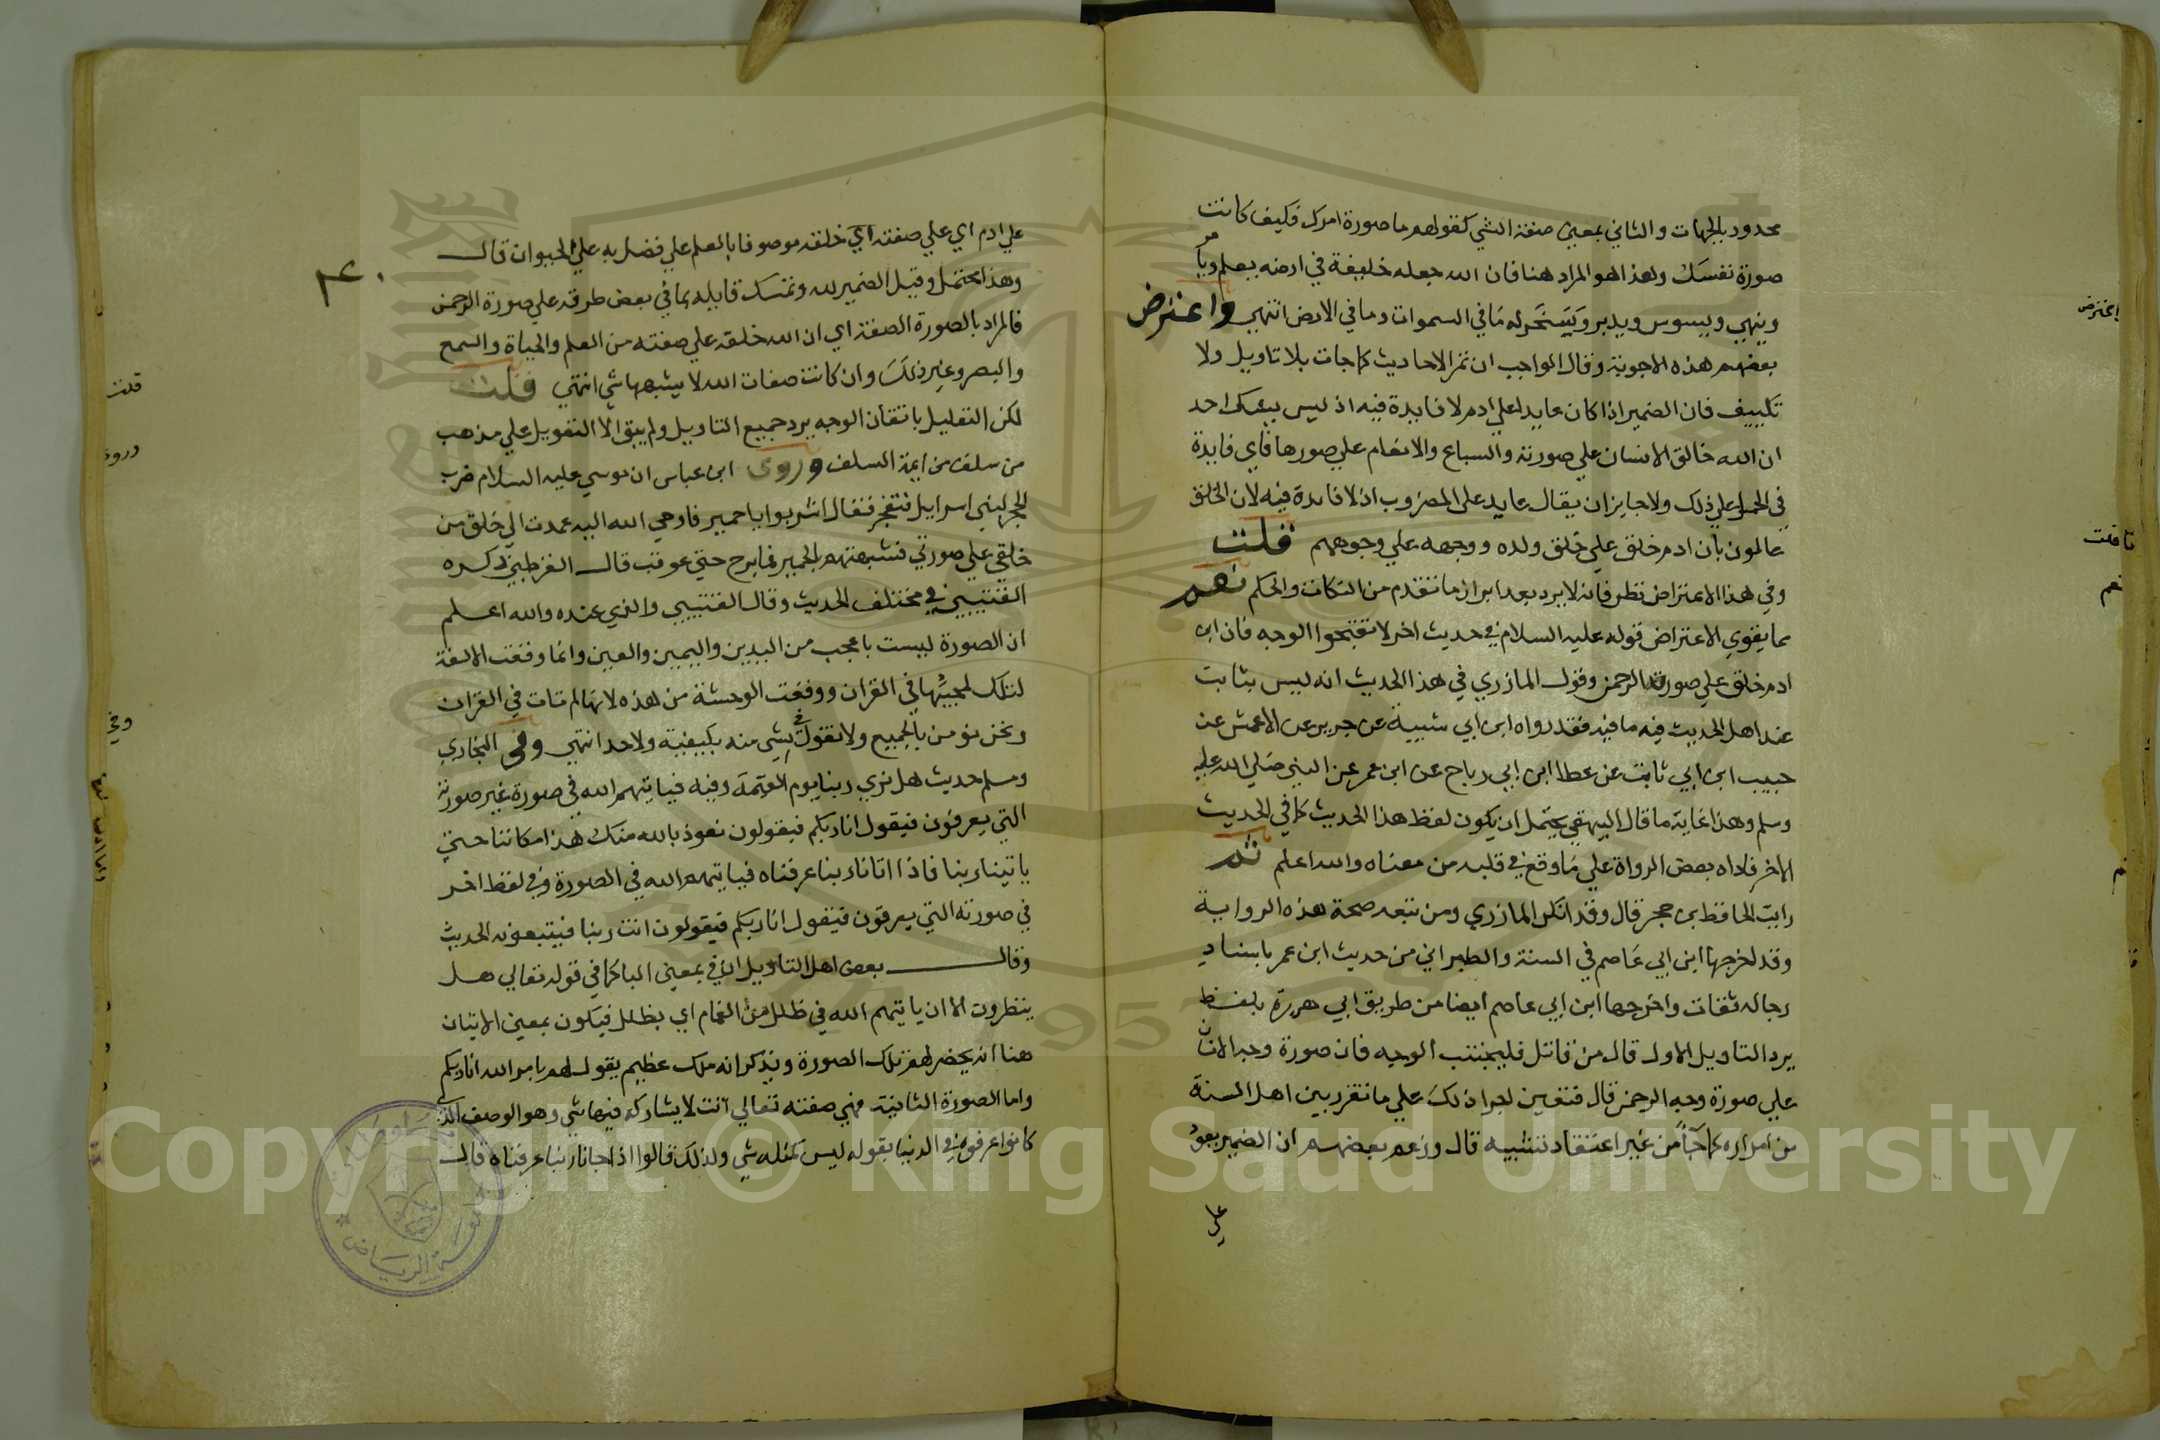 محدود بالجهات والثاني بمعني صفة الشي كقولهم ما صورة امرك فكيف كانت
صورة نفسك وهذا هو المراد هنا فان الله جعله خليفة في ارضه يعلم ويامر
وينهي ويسوس ويدبر ويسخر له ما في السموات وما في الارض انتهي واعترض
بعضهم هذه الاجوبة وقال الواجب ان تمر الاحاديث كما جات بلا تاويل ولا
تكييف فان الضمير اذا كان عايدا علي ادم لا فايدة فيه اذ ليس يشك احد
ان الله خالق الانسان علي صورته والسباع والانعام علي صورها فاي فايدة
في الحمل علي ذلك ولا جايز ان يقال عايد علي المضروب اذ لا فايدة فيه لان الخلق
عالمون بان ادم خلق علي خلق ولده ووجهه علي وجوههم قلت
وفي هذا الاعتراض نظر فانه لا يرد بعد ابراز ما تقدم من النكات والحكم نعم
مما يقوي الاعتراض قوله عليه السلام في حديث اخر لا تقبحوا الوجه فان ابن
ادم خلق علي صورة الرحمن وقول المازري في هذا الحديث انه ليس بثابت
عند اهل الحديث فيه ما فيه فقد رواه ابن ابي شيبة عن جرير عن الاعمش عن
حبيب ابن ابي ثابت عن عطا ابن ابي رباح عن ابن عمر عن النبي صلي الله عليه
وسلم وهذا غاية ما قال البيهقي يحتمل ان يكون لفظ هذا الحديث كما في الحديث
الاخر فاداه بعض الرواة علي ما وقع في قلبه من معناه والله اعلم ثم
رايت الحافظ بن حجر قال وقد انكر المازري ومن تبعه صحة هذه الرواية
وقد اخرجها ابن ابي عاصم في السنة والطبراني من حديث ابن عمر باسناد
رجاله ثقات واخرجها ابن ابي عاصم ايضا من طريق ابي هريرة بلفظ
يرد التاويل الاول قال من قاتل فليجتنب الوجه فان صورة وجه الانسان
علي صورة وجه الرحمن قال فتعين اجرا ذلك علي ما تقرر بين اهل السنة
من امراره كما جا من غير اعتقاد تشبيه قال وزعم بعضهم ان الضمير يعود
علي
اعترض
قلت
نعم
ثم
٤٠
علي ادم اي علي صفته اي خلقه موصوفا بالعلم علي فضل به علي الحيوان قال
وهذا محتمل وقيل الضمير لله وتمسك قايله بما في بعض طرقه علي صورة الرحمن
فالمراد بالصورة الصفة اي ان الله خلقه علي صفته من العلم والحياة والسمع
والبصر وغير ذلك وان كانت صفات الله لا يشبهها شي انتهي قلت
لكن التعليل باتقان الوجه يرد جميع التاويل ولم يبق الا التعويل علي مذهب
من سلف من ايمة السلف وروي ابن عباس ان موسي عليه السلام ضرب
الحجر لبني اسرايل فتفجر فقال اشربوا يا حمير فاوحي الله اليه عمدت الي خلق من
خلقي علي صورتي فشبهتهم بالحمير فما برح حتي عوقب قال القرطبي ذكره
القتيبي في مختلف الحديث وقال القتيبي والذي عنده والله اعلم
ان الصورة ليست باعجب من اليدين واليمين والعين وانما وقعت الالفة
لتلك لمجييها في القران ووقعت الوحشة من هذه لانها لم تات في القران
ونحن نومن بالجميع ولا نقول في شي منه بكيفية ولا حد انتهي وفي البخاري
ومسلم حديث هل نري ربنا يوم القيمة وفيه فياتيهم الله في صورة غير صورته
التي يعرفون فيقول انا ربكم فيقولون نعوذ بالله منك هذا مكاننا حتي
ياتينا ربنا فاذا اتانا ربنا عرفناه فياتيهم الله في الصورة وفي لفظ اخر
في صورته التي يعرفون فيقول انا ربكم فيقولون انت ربنا فيتبعونه الحديث
وقال بعض اهل التاويل ان في بمعني البا كما في قوله تعالي هل
ينظرون الا ان ياتيهم الله في ظلل من الغمام اي بظلل فيكون بمعني الاتيان
هنا انه يحضر لهم تلك الصورة ويذكر انه ملك عظيم يقول لهم بامر الله انا ربكم
واما الصورة الثانية فهي صفته تعالي التي لا يشاركه فيها شي وهو الوصف الذي
كانوا عرفوه في الدنيا بقوله ليس كمثله شي ولذلك قالوا اذا جانا ربنا عرفناه قال
قلت
وروي
وفي
Copyright © King Saud University
1957